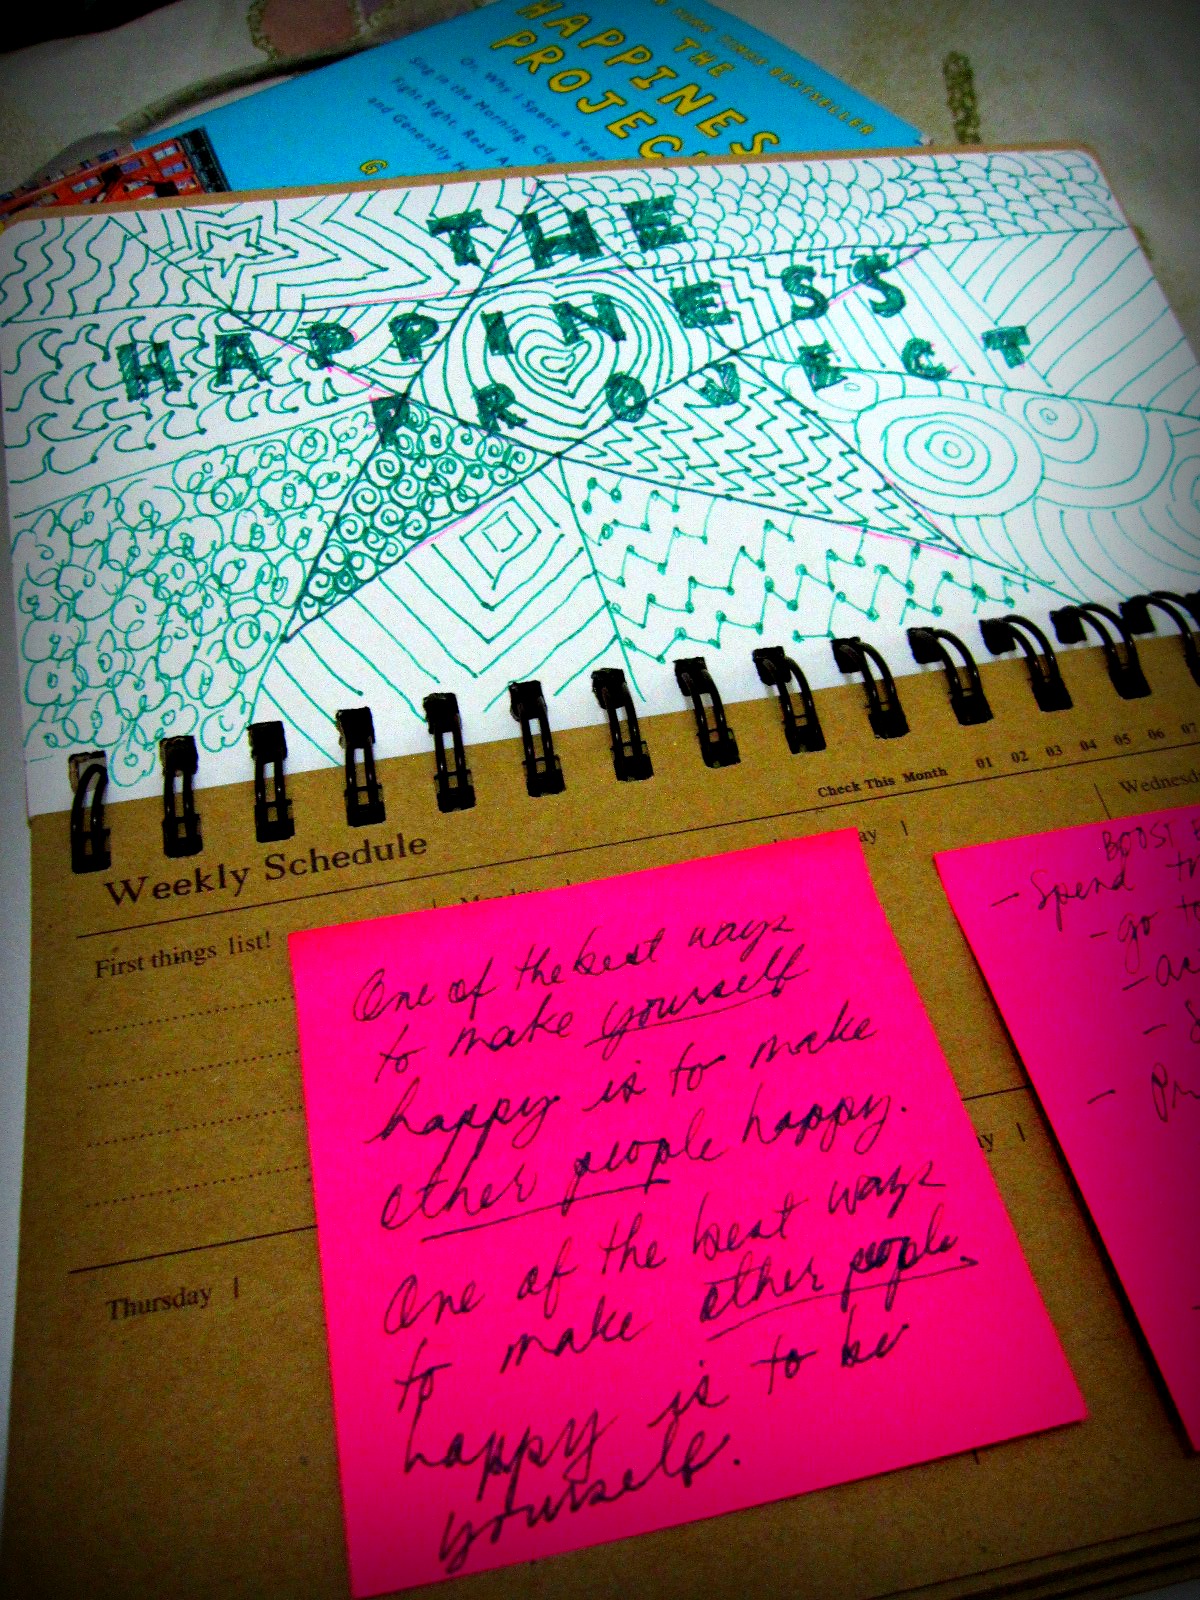 A NEW YORK TIMES BESTSELLER
THE
HAPPINESS
PROJEC
Or, Why I Spent a Year
Sing in the Morning, Cle
Fight Right, Read A
and Generally H
G
THE
HAPPINESS
PROJECT
Check This Month 01 02 03 04 05 06 07
Weekly Schedule
Wednesd
First things list!
Monday |
ay |
One of the best ways
to make yourself
happy is to make
other people happy.
One of the best ways
to make other people
happy is to be
yourself.
BOOST E
- Spend t
- go to
- a
-
- Pr
Thursday |
ay |